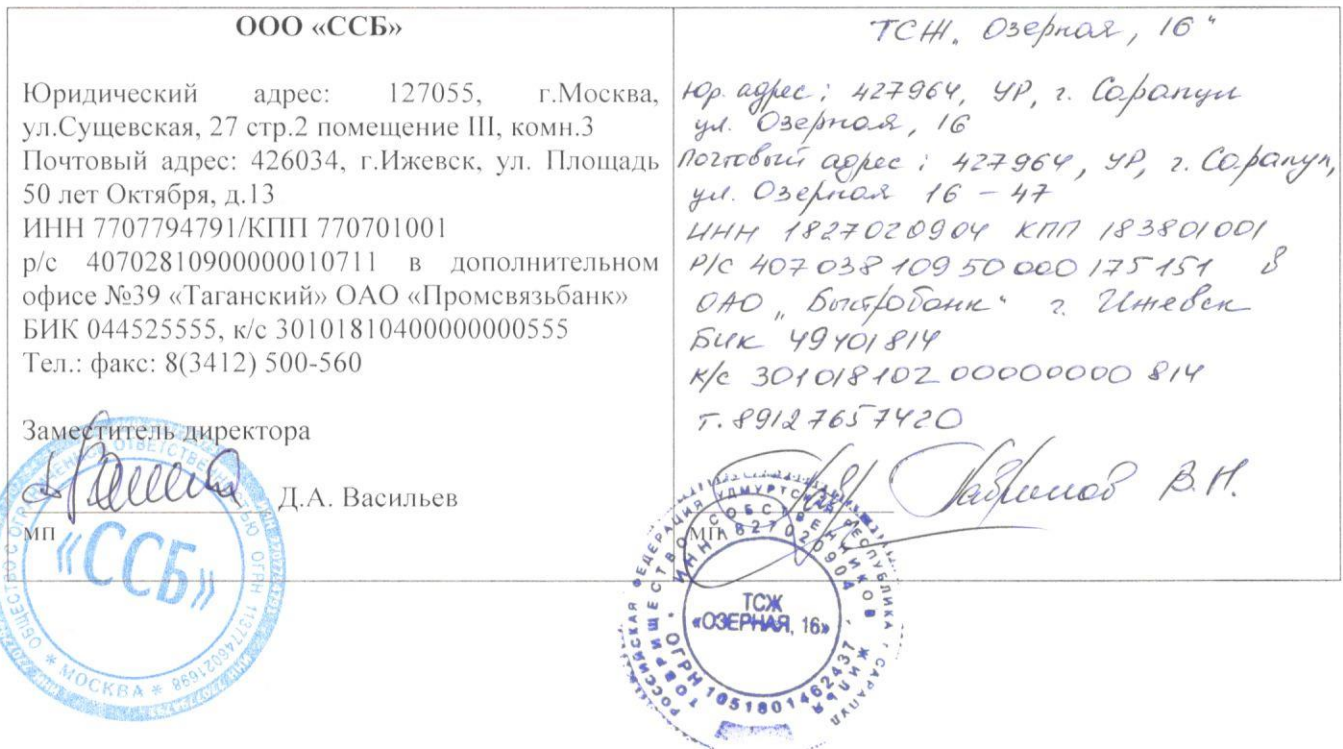 ООО «ССБ»
Юридический адрес: 127055, г.Москва,
ул.Сущевская, 27 стр.2 помещение III, комн.3
Почтовый адрес: 426034, г.Ижевск, ул. Площадь
50 лет Октября, д.13
ИНН 7707794791/КПП 770701001
р/с 40702810900000010711 в дополнительном
офисе №39 «Таганский» ОАО «Промсвязьбанк»
БИК 044525555, к/с 30101810400000000555
Тел.: факс: 8(3412) 500-560
Заместитель директора
Д.А. Васильев
МП
ОБЩЕСТВО С ОГРАНИЧЕННОЙ ОТВЕТСТВЕННОСТЬЮ ОГРН 1137746021698
«ССБ»
* МОСКВА *
ТСЖ „Озерная, 16"
Юр. адрес: 427964, УР, г. Сарапул
ул. Озерная, 16
Почтовый адрес: 427964, УР, г. Сарапул,
ул. Озерная 16-47
ИНН 1827020904 КПП 183801001
Р/С 40703810950000175151 в
ОАО „Быстробанк" г. Ижевск
БИК 49401814
К/с 30101810200000000814
Т. 89127657420
В.Н.
МП
РОССИЙСКАЯ ФЕДЕРАЦИЯ УДМУРТСКАЯ РЕСПУБЛИКА г САРАПУЛ
ТОВАРИЩЕСТВО СОБСТВЕННИКОВ ЖИЛЬЯ
ИНН 1827020904
ОГРН 1051801462437
ТСЖ
«ОЗЕРНАЯ, 16»